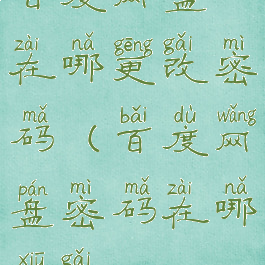 zài nǎ gēng gǎi mì
在哪更改密
mǎ bǎi dù wǎng
码（百度网
pán mì mǎ zài nǎ
盘密码在哪
xiū gǎi